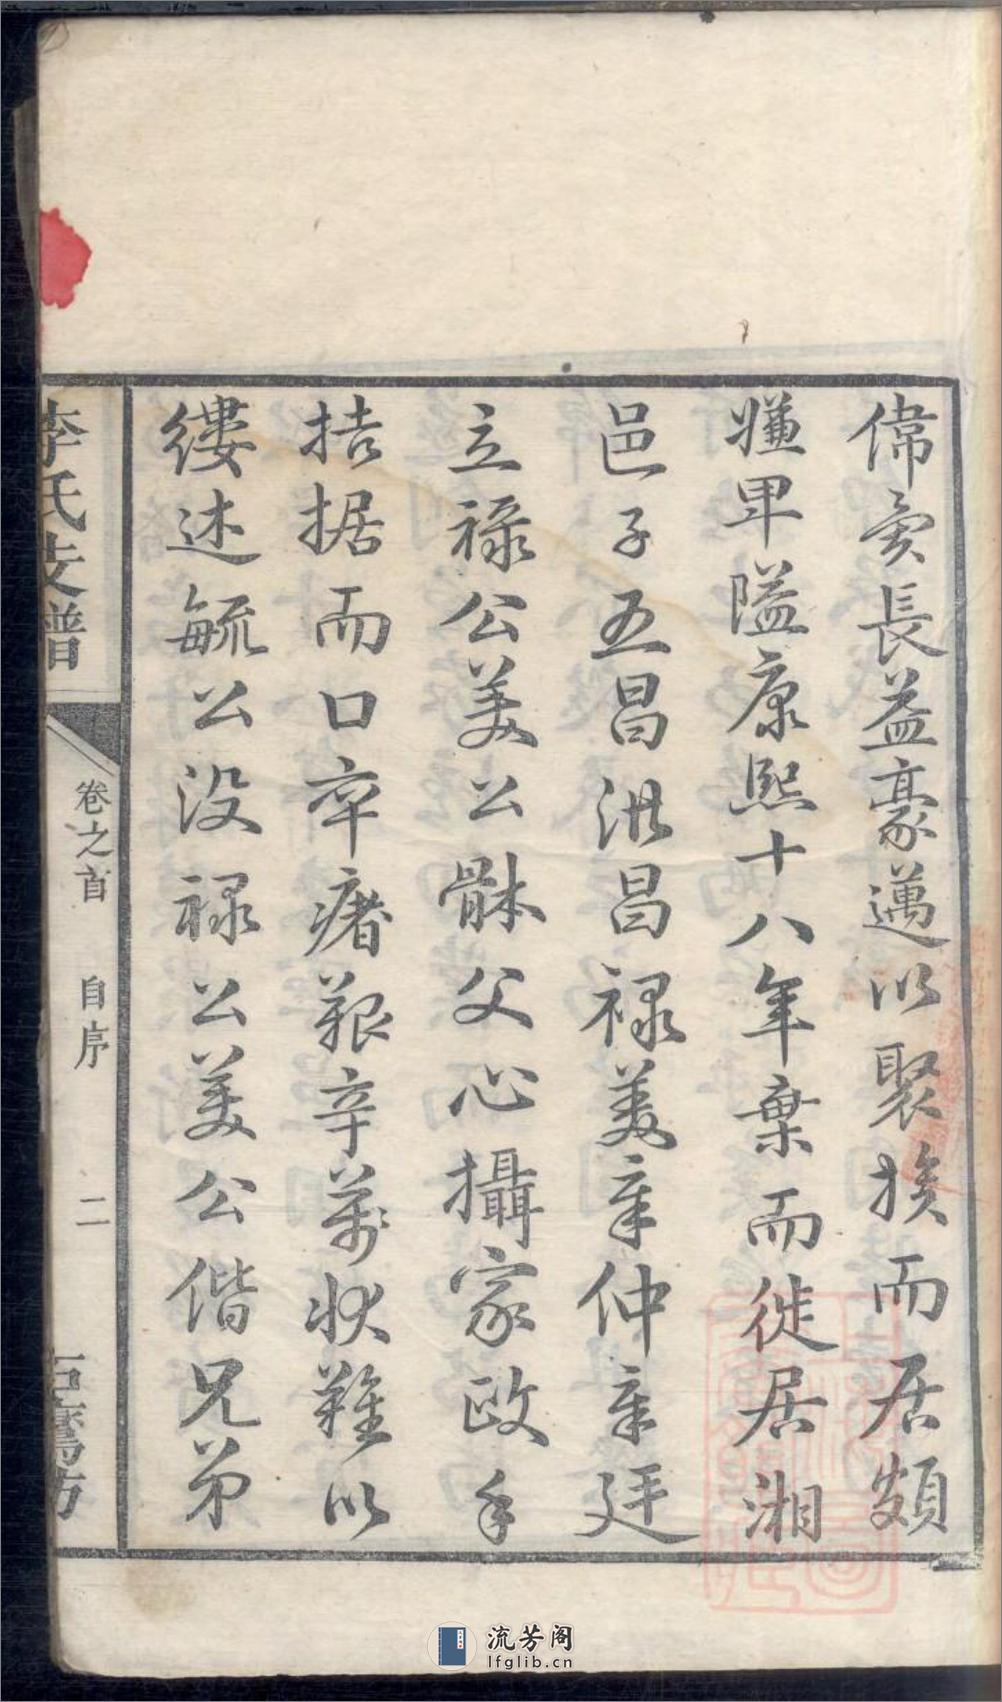 偉奇長益豪邁以聚族而居頗
嫌卑隘康熙十八年棄而徙居湘
邑子五昌洪昌祿美章仲章廷
立祿公美公體父心攝家政手
拮据而口卒瘏艱辛萬狀難以
縷述毓公没祿公美公偕兄弟
李氏支譜
卷之首 自序 二
流芳阁
lfglib.cn